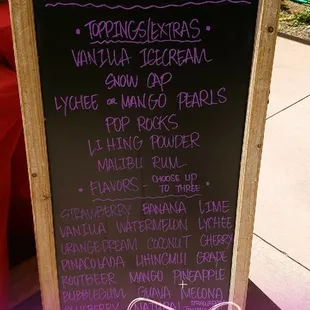 TOPPINGS/EXTRAS
VANILLA ICECREAM
SNOW CAP
LYCHEE OR MANGO PEARLS
POP ROCKS
LI HING POWDER
MALIBU RUM
FLAVORS - CHOOSE UP TO THREE
STRAWBERRY BANANA LIME
VANILLA WATERMELON LYCHEE
ORANGE DREAM COCONUT CHERRY
PINACOLADA LIHINGMUI GRAPE
ROOTBEER MANGO PINEAPPLE
BUBBLEGUM GUAVA MELONA
BLUEBERRY NATURAL